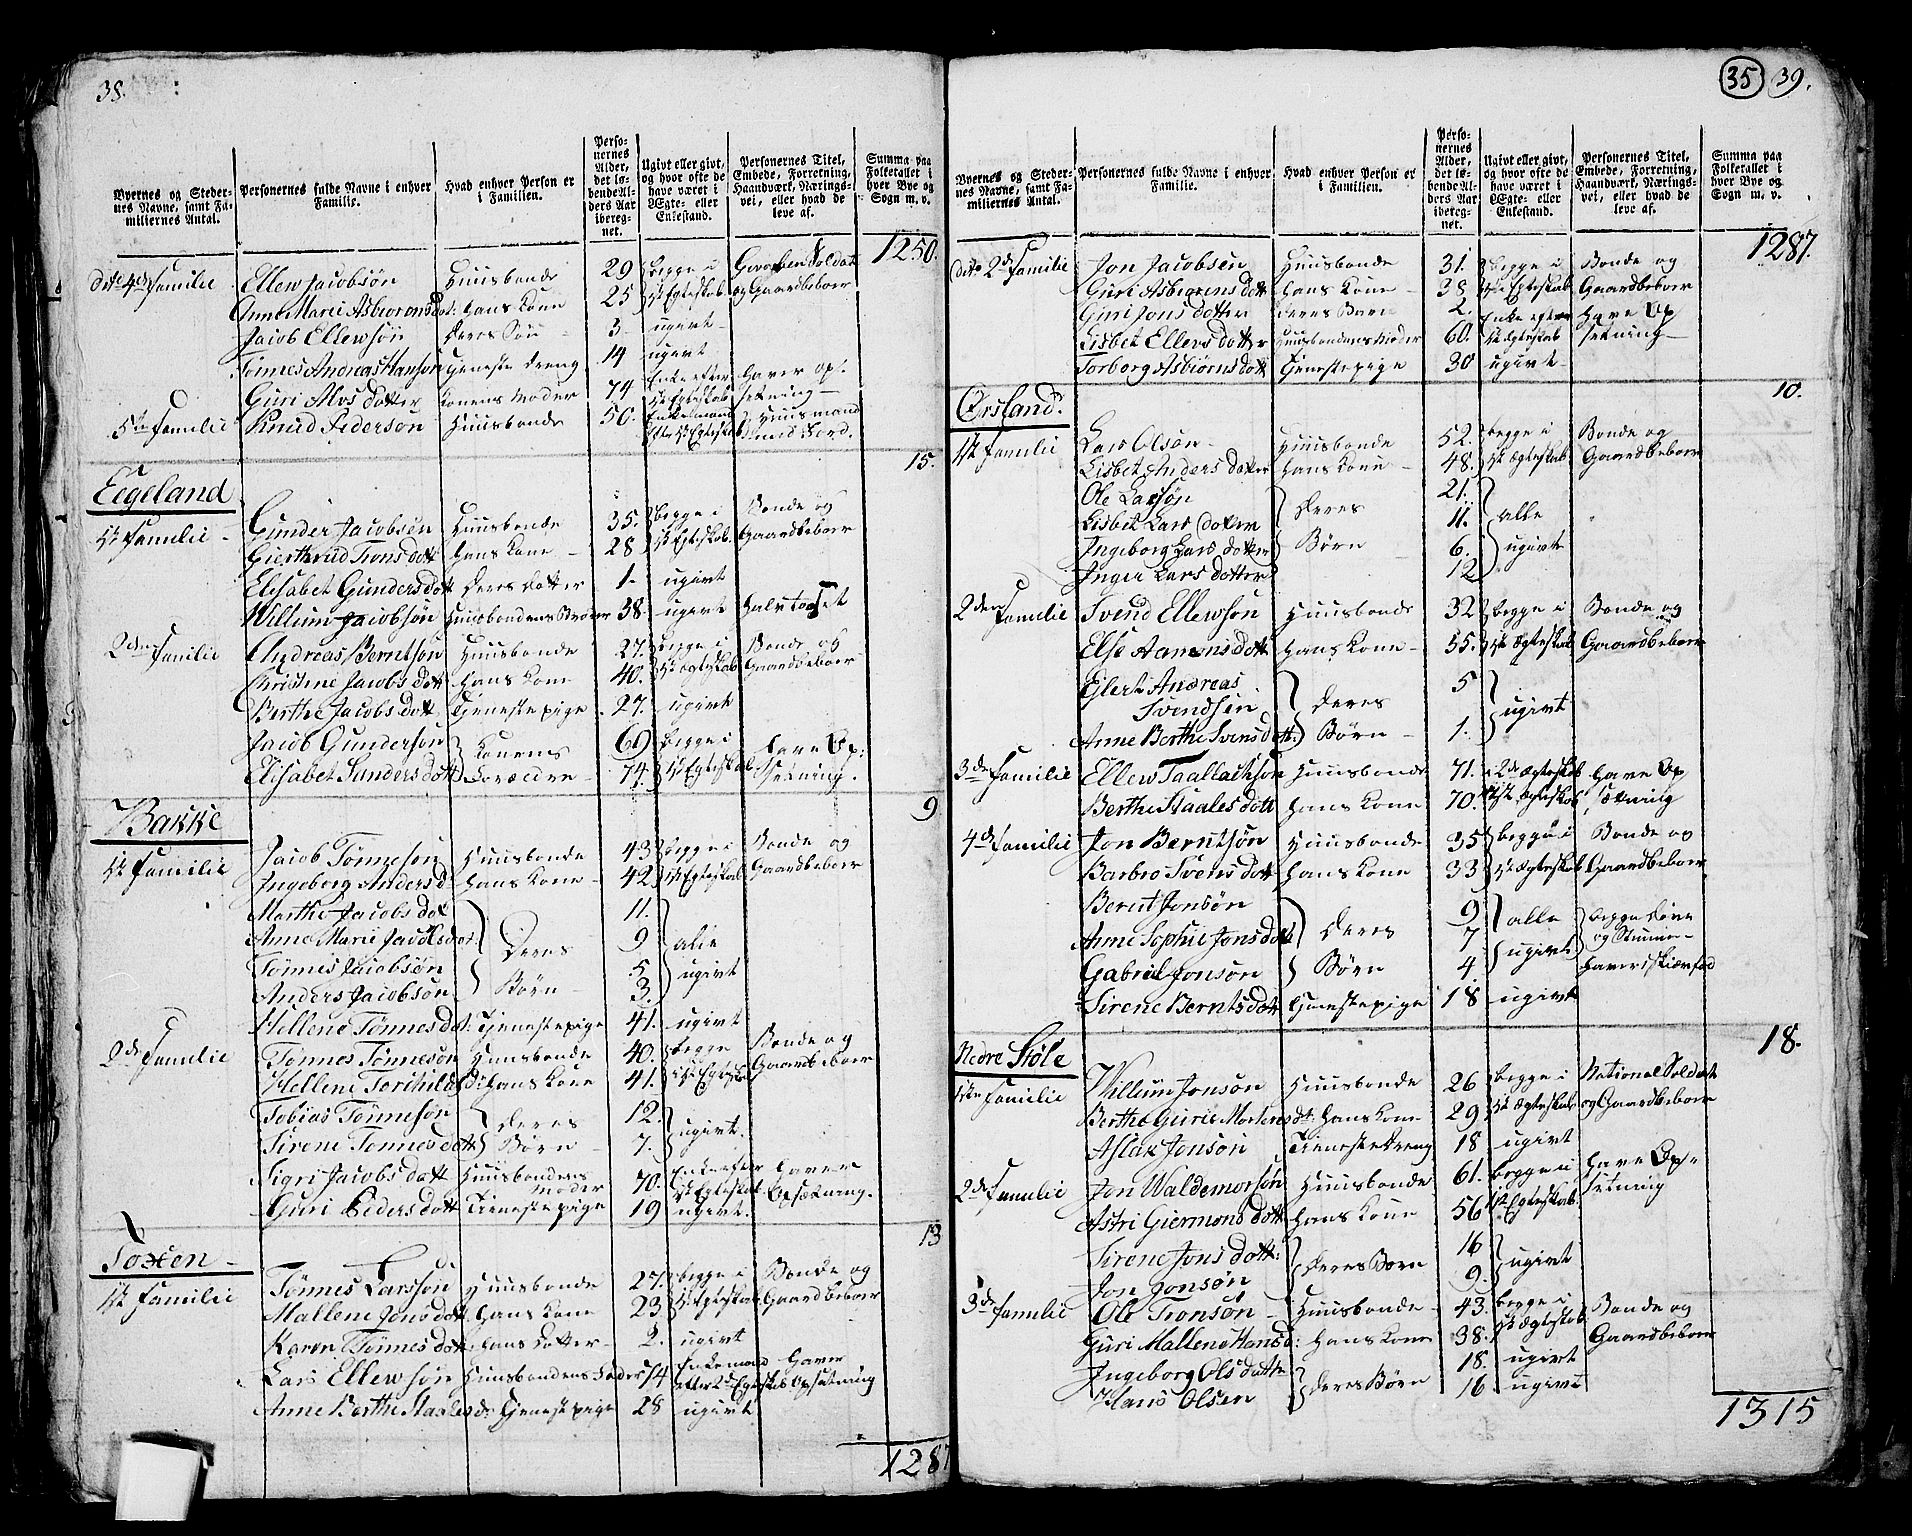 38.
Byernes og Stedernes Navne, samt Familiernes Antal.
Personernes fulde Navne i enhver Familie.
Hvad enhver Person er i Familien.
Personernes Alder, det løbende Alders Aar iberegnet.
Ugivt eller givt, og hvor ofte de have været i Ægte- eller Enkestand.
Personernes Titel, Embede, Forretning, Haandværk, Næringsvei, eller hvad de leve af.
Summa paa Folketallet i hver Bye og Sogn m. v.
1250.
dito 4de Familie Ellew Jacobsøn Huusbonde 29 begge i Gevorben Soldat
Anne Marie Asbiørensdot: hans Kone 25 1st Egteskab og Gaardbeboer
Jacob Ellewsøn deres Søn 3 ugivt
Tønnes Andreas Hansøn tjeneste dreng 14 ugivt
Guri Alvs dotter Konens Moder 74 Enke efter 1st Egteskab haver Opsetning
5te Familie Knud Pedersøn Huusbonde 50. Enkemand efter 1st Egteskab Huusmand med Jord.
15.
Eegeland
1ste Familie Gunder Jacobsen Huusbonde 35. begge i Bonde og
Gierthrud Tronsdott hans Kone 28 1st Egteskab. Gaardbeboer
Elisabet Gundersdott deres dotter 1. ugivt
Willum Jacobsøn Huusbondens Broder 38. ugivt halv tosset
2den Familie Andreas Berntsøn Huusbonde 27. begge i Bonde og
Christine Jacobs dott hans Kone 40. 1st Ægteskab Gaardbeboer
Berthe Jacobs dott Tjenestepige 27. ugivt
Jacob Gundersøn Konens 69 begge i have Op:
Elisabet Sanders dott Forældre 74. 1st Egteskab setning.
9
Bakke
1st Familie Jacob Tønnesøn Huusbonde 43 begge i Bonde og
Ingeborg Anders d. hans Kone 42 1st Egteskab Gaardbeboer
Marthe Jacobs dot 11.
Anne Marie Jacobsdot: deres 9 alle
Tønnes Jacobsøn Børn 5 ugivt
Anders Jacobsøn 3.
Hellene Tønnesdot: Tjenestepige 41. ugivt
2de Familie Tønnes Tønnesøn Huusbonde 40. begge Bonde og
Hellene Torkildsd: hans Kone 41. 1st Egteskab Gaardbeboer
Tobias Tønnesøn deres 12.
Sirene Tønnesdott Børn 7. ugivt.
Sigri Jacobs dott Huusbondens Moder 70. Enke efter 1st Egteskab haver Opsætning.
Guri Peders dott Tienestepige 19 ugivt.
13
Toxen
1st Familie Tønnes Larssøn Huusbonde 27. begge i Bonde og
Mallene Jonsdott hans Kone 23 1st Egteskab Gaardbeboer
Karen Tønnes dott hans dotter 2. ugivt
Lars Ellewsøn Huusbondens Fader 74 Enkemand efter 2d Egteskab haver Opsetning
Anne Berthe Staalesd: Tjenestepige 28 ugivt
1287
35 39.
Byernes og Stedernes Navne, samt Familiernes Antal.
Personernes fulde Navne i enhver Familie.
Hvad enhver Person er i Familien.
Personernes Alder, det løbende Alders Aar iberegnet.
Ugivt eller givt, og hvor ofte de have været i Ægte- eller Enkestand.
Personernes Titel, Embede, Forretning, Haandværk, Næringsvei, eller hvad de leve af.
Summa paa Folketallet i hver Bye og Sogn m. v.
1287.
dito 2de Familie Jon Jacobsen Huusbonde 31. begge i Bonde og
Guri Asbiørens dott hans Kone 38 1st Egteskab Gaardbeboer
Guri Jons dotter deres Barn 2.
Lisbet Ellevs dotter Huusbondens Moder 60. Enke efter 1st Ægteskab have Opsetning
Torborg Asbiørns dott Tjenestepige 30 ugivt
10.
Ørsland.
1st Familie Lars Olsøn Huusbonde 52. begge i Bonde og
Lisbet Anders dotter hans Kone 48. 1st Ægteskab Gaardbeboer
Ole Larsøn 21.
Lisbet Lars dotter deres 11. alle
Ingeborg Lars dotter Børn 6. ugivt
Inger Lars dotter 12
2den Familie Svend Ellewsøn Huusbonde 32 begge i Bonde og
Else Aamons dott hans Kone 35. 1st Ægteskab Gaardbeboer
Ejlert Andreas Svendsen deres 5 ugivt
Anne Berthe Svensdott: Børn 1.
3de Familie Ellew Taallachsøn Huusbonde 71. i 2de Ægteskab have Op
Berthe Staales dott hans Kone 70. 1st Ægteskab, sætning
4de Familie Jon Berntsøn Huusbonde 35 begge i Bonde og
Barbro Svens dott hans Kone 33 1st Ægteskab Gaardbeboer
Bernt Jonsøn 9 alle begge døve
Anne Sophie Jonsdott deres 7 ugivt og Stumme
Gabriel Jonsøn Børn 4
Sirene Berntsdott tjenestepige 18 ugivt
18.
Nedre Støle
1ste Familie Willum Jonsøn Huusbonde 26 begge i National Soldat
Berthe Gurie Mortensdt: hans Kone 29 1st Ægteskab og Gaardbeboer
Aslak Jonsøn Tienestedreng 18 ugivt
2de Familie Jon Waldemorsøn Huusbonde 61. begge i have Op
Astri Giermons dott hans Kone 56 1st Egteskab. setning
Sirene Jons dott: deres Børn 16 ugivt
Jon Jonsøn 9.
3de Familie Ole Tronsøn Huusbonde 43. begge i Bonde og
Guri Mallene Hansd: hans Kone 38. 1st Ægteskab Gaardbeboer
Ingeborg Olsdotter deres Børn 18. ugivt
Hans Olsen 16 ugivt
1315